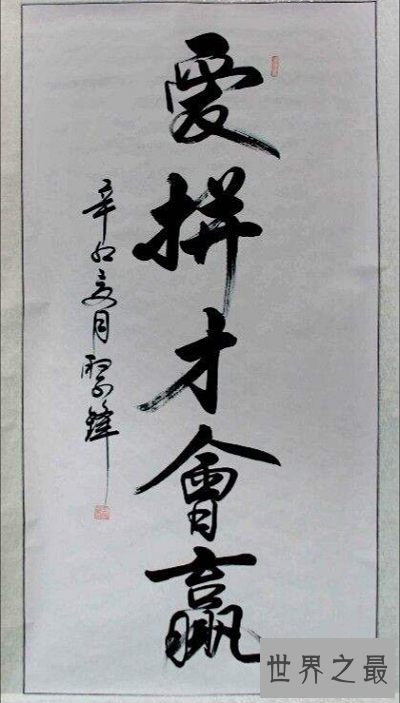 愛拼才會贏
辛卯夏月
世界之最